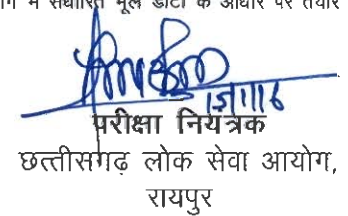 में संधारित मूल डाटा के आधार पर तैयार
15/1/16
परीक्षा नियंत्रक
छत्तीसगढ़ लोक सेवा आयोग,
रायपुर